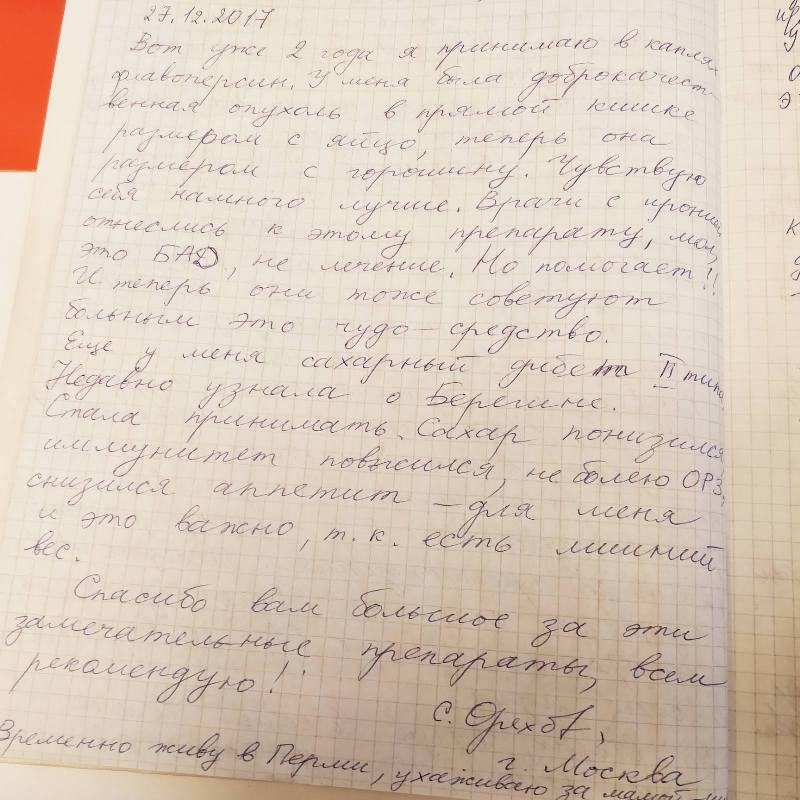 27.12.2017
Вот уже 2 года я принимаю в каплях
флавоперсин. У меня была доброкачест-
венная опухоль в прямой кишке
размером с яйцо, теперь она
размером с горошину. Чувствую
себя намного лучше. Врачи с иронией
отнеслись к этому препарату, мол,
это БАД, не лечение. Но помогает!!
И теперь они тоже советуют
больным это чудо-средство.
Еще у меня сахарный диабет II типа.
Недавно узнала о Берегине.
Стала принимать. Сахар понизился,
иммунитет повысился, не болею ОРЗ,
снизился аппетит - для меня
и это важно, т.к. есть лишний
вес.
Спасибо вам большое за эти
замечательные препараты, всем
рекомендую!
С.
г. Москва
Временно живу в Перми, ухаживаю за мамой